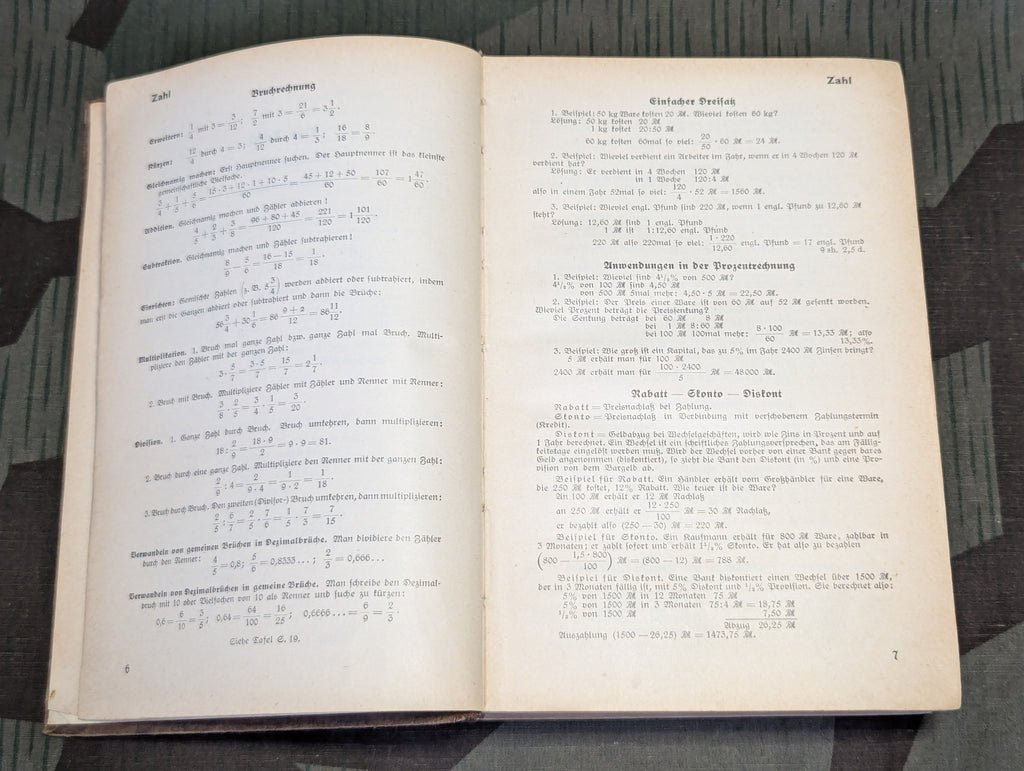 Zahl
Bruchrechnung
Erweitern: 1/4 mit 3 = 3/12; 7/2 mit 3 = 21/6 = 3 1/2.
Kürzen: 12/4 durch 4 = 3; 4/12 durch 4 = 1/3; 16/18 = 8/9.
Gleichnamig machen: Erst Hauptnenner suchen. Der Hauptnenner ist das kleinste
gemeinschaftliche Vielfache.
3/4 + 1/5 + 5/6 = (15·3 + 12·1 + 10·5)/60 = (45 + 12 + 50)/60 = 107/60 = 1 47/60.
Addition. Gleichnamig machen und Zähler addieren!
4/5 + 2/3 + 3/8 = (96 + 80 + 45)/120 = 221/120 = 1 101/120.
Subtraktion. Gleichnamig machen und Zähler subtrahieren!
8/9 − 5/6 = (16 − 15)/18 = 1/18.
Einrichten: Gemischte Zahlen (z. B. 5 3/4) werden addiert oder subtrahiert, indem
man erst die Ganzen addiert oder subtrahiert und dann die Brüche:
56 3/4 + 30 1/6 = 86 (9 + 2)/12 = 86 11/12.
Multiplikation. 1. Bruch mal ganze Zahl bzw. ganze Zahl mal Bruch. Multi-
pliziere den Zähler mit der ganzen Zahl:
3 · 5/7 = 3·5/7 = 15/7 = 2 1/7.
2. Bruch mit Bruch. Multipliziere Zähler mit Zähler und Nenner mit Nenner:
3/8 · 2/5 = 3/4 · 1/5 = 3/20.
Division. 1. Ganze Zahl durch Bruch. Bruch umkehren, dann multiplizieren:
18 : 2/9 = 18·9/2 = 9 · 9 = 81.
2. Bruch durch eine ganze Zahl. Multipliziere den Nenner mit der ganzen Zahl:
2/9 : 4 = 2/(9·4) = 1/(9·2) = 1/18.
3. Bruch durch Bruch. Den zweiten (Divisor-) Bruch umkehren, dann multiplizieren:
2/5 : 6/7 = 2/5 · 7/6 = 1/5 · 7/3 = 7/15.
Verwandeln von gemeinen Brüchen in Dezimalbrüche. Man dividiere den Zähler
durch den Nenner: 4/5 = 0,8; 5/6 = 0,8333...; 2/3 = 0,666...
Verwandeln von Dezimalbrüchen in gemeine Brüche. Man schreibe den Dezimal-
bruch mit 10 oder Vielfachen von 10 als Nenner und suche zu kürzen:
0,6 = 6/10 = 3/5; 0,64 = 64/100 = 16/25; 0,6666... = 6/9 = 2/3.
Siehe Tafel S. 19.
6
Zahl
Einfacher Dreisatz
1. Beispiel: 50 kg Ware kosten 20 ℛℳ. Wieviel kosten 60 kg?
Lösung: 50 kg kosten 20 ℛℳ
1 kg kostet 20:50 ℛℳ
60 kg kosten 60mal so viel: 20/50 · 60 ℛℳ = 24 ℛℳ.
2. Beispiel: Wieviel verdient ein Arbeiter im Jahr, wenn er in 4 Wochen 120 ℛℳ
verdient hat?
Lösung: Er verdient in 4 Wochen 120 ℛℳ
in 1 Woche 120:4 ℛℳ
also in einem Jahr 52mal so viel: 120/4 · 52 ℛℳ = 1560 ℛℳ.
3. Beispiel: Wieviel engl. Pfund sind 220 ℛℳ, wenn 1 engl. Pfund zu 12,60 ℛℳ
steht?
Lösung: 12,60 ℛℳ sind 1 engl. Pfund
1 ℛℳ ist 1:12,60 engl. Pfund
220 ℛℳ also 220mal so viel: 1·220/12,60 engl. Pfund = 17 engl. Pfund
9 sh. 2,5 d.
Anwendungen in der Prozentrechnung
1. Beispiel: Wieviel sind 4½% von 500 ℛℳ?
4½% von 100 ℛℳ sind 4,50 ℛℳ
von 500 ℛℳ 5mal mehr: 4,50 · 5 ℛℳ = 22,50 ℛℳ.
2. Beispiel: Der Preis einer Ware ist von 60 ℛℳ auf 52 ℛℳ gesenkt worden.
Wieviel Prozent beträgt die Preissenkung?
Die Senkung beträgt bei 60 ℛℳ 8 ℛℳ
bei 1 ℛℳ 8:60 ℛℳ
bei 100 ℛℳ 100mal mehr: 8·100/60 ℛℳ = 13,33 ℛℳ; also
13,33%.
3. Beispiel: Wie groß ist ein Kapital, das zu 5% im Jahr 2400 ℛℳ Zinsen bringt?
5 ℛℳ erhält man für 100 ℛℳ
2400 ℛℳ erhält man für 100·2400/5 ℛℳ = 48000 ℛℳ.
Rabatt — Skonto — Diskont
Rabatt = Preisnachlaß bei Zahlung.
Skonto = Preisnachlaß in Verbindung mit verschobenem Zahlungstermin
(Kredit).
Diskont = Geldabzug bei Wechselgeschäften, wird wie Zins in Prozent und auf
1 Jahr berechnet. Ein Wechsel ist ein schriftliches Zahlungsversprechen, das am Fällig-
keitstage eingelöst werden muß. Wird der Wechsel vorher von einer Bank gegen bares
Geld angenommen (diskontiert), so zieht die Bank den Diskont (in %) und eine Pro-
vision von dem Bargeld ab.
Beispiel für Rabatt. Ein Händler erhält vom Großhändler für eine Ware,
die 250 ℛℳ kostet, 12% Rabatt. Wie teuer ist die Ware?
An 100 ℛℳ erhält er 12 ℛℳ Nachlaß
an 250 ℛℳ erhält er 12·250/100 ℛℳ = 30 ℛℳ Nachlaß,
er bezahlt also (250 — 30) ℛℳ = 220 ℛℳ.
Beispiel für Skonto. Ein Kaufmann erhält für 800 ℛℳ Ware, zahlbar in
3 Monaten; er zahlt sofort und erhält 1½% Skonto. Er hat also zu bezahlen
(800 — 1,5·800/100) ℛℳ = (800 — 12) ℛℳ = 788 ℛℳ.
Beispiel für Diskont. Eine Bank diskontiert einen Wechsel über 1500 ℛℳ,
der in 3 Monaten fällig ist, mit 5% Diskont und ½% Provision. Sie berechnet also:
5% von 1500 ℛℳ in 12 Monaten 75 ℛℳ
5% von 1500 ℛℳ in 3 Monaten 75:4 ℛℳ = 18,75 ℛℳ
½% von 1500 ℛℳ 7,50 ℛℳ
Abzug 26,25 ℛℳ
Auszahlung (1500 — 26,25) ℛℳ = 1473,75 ℛℳ.
7